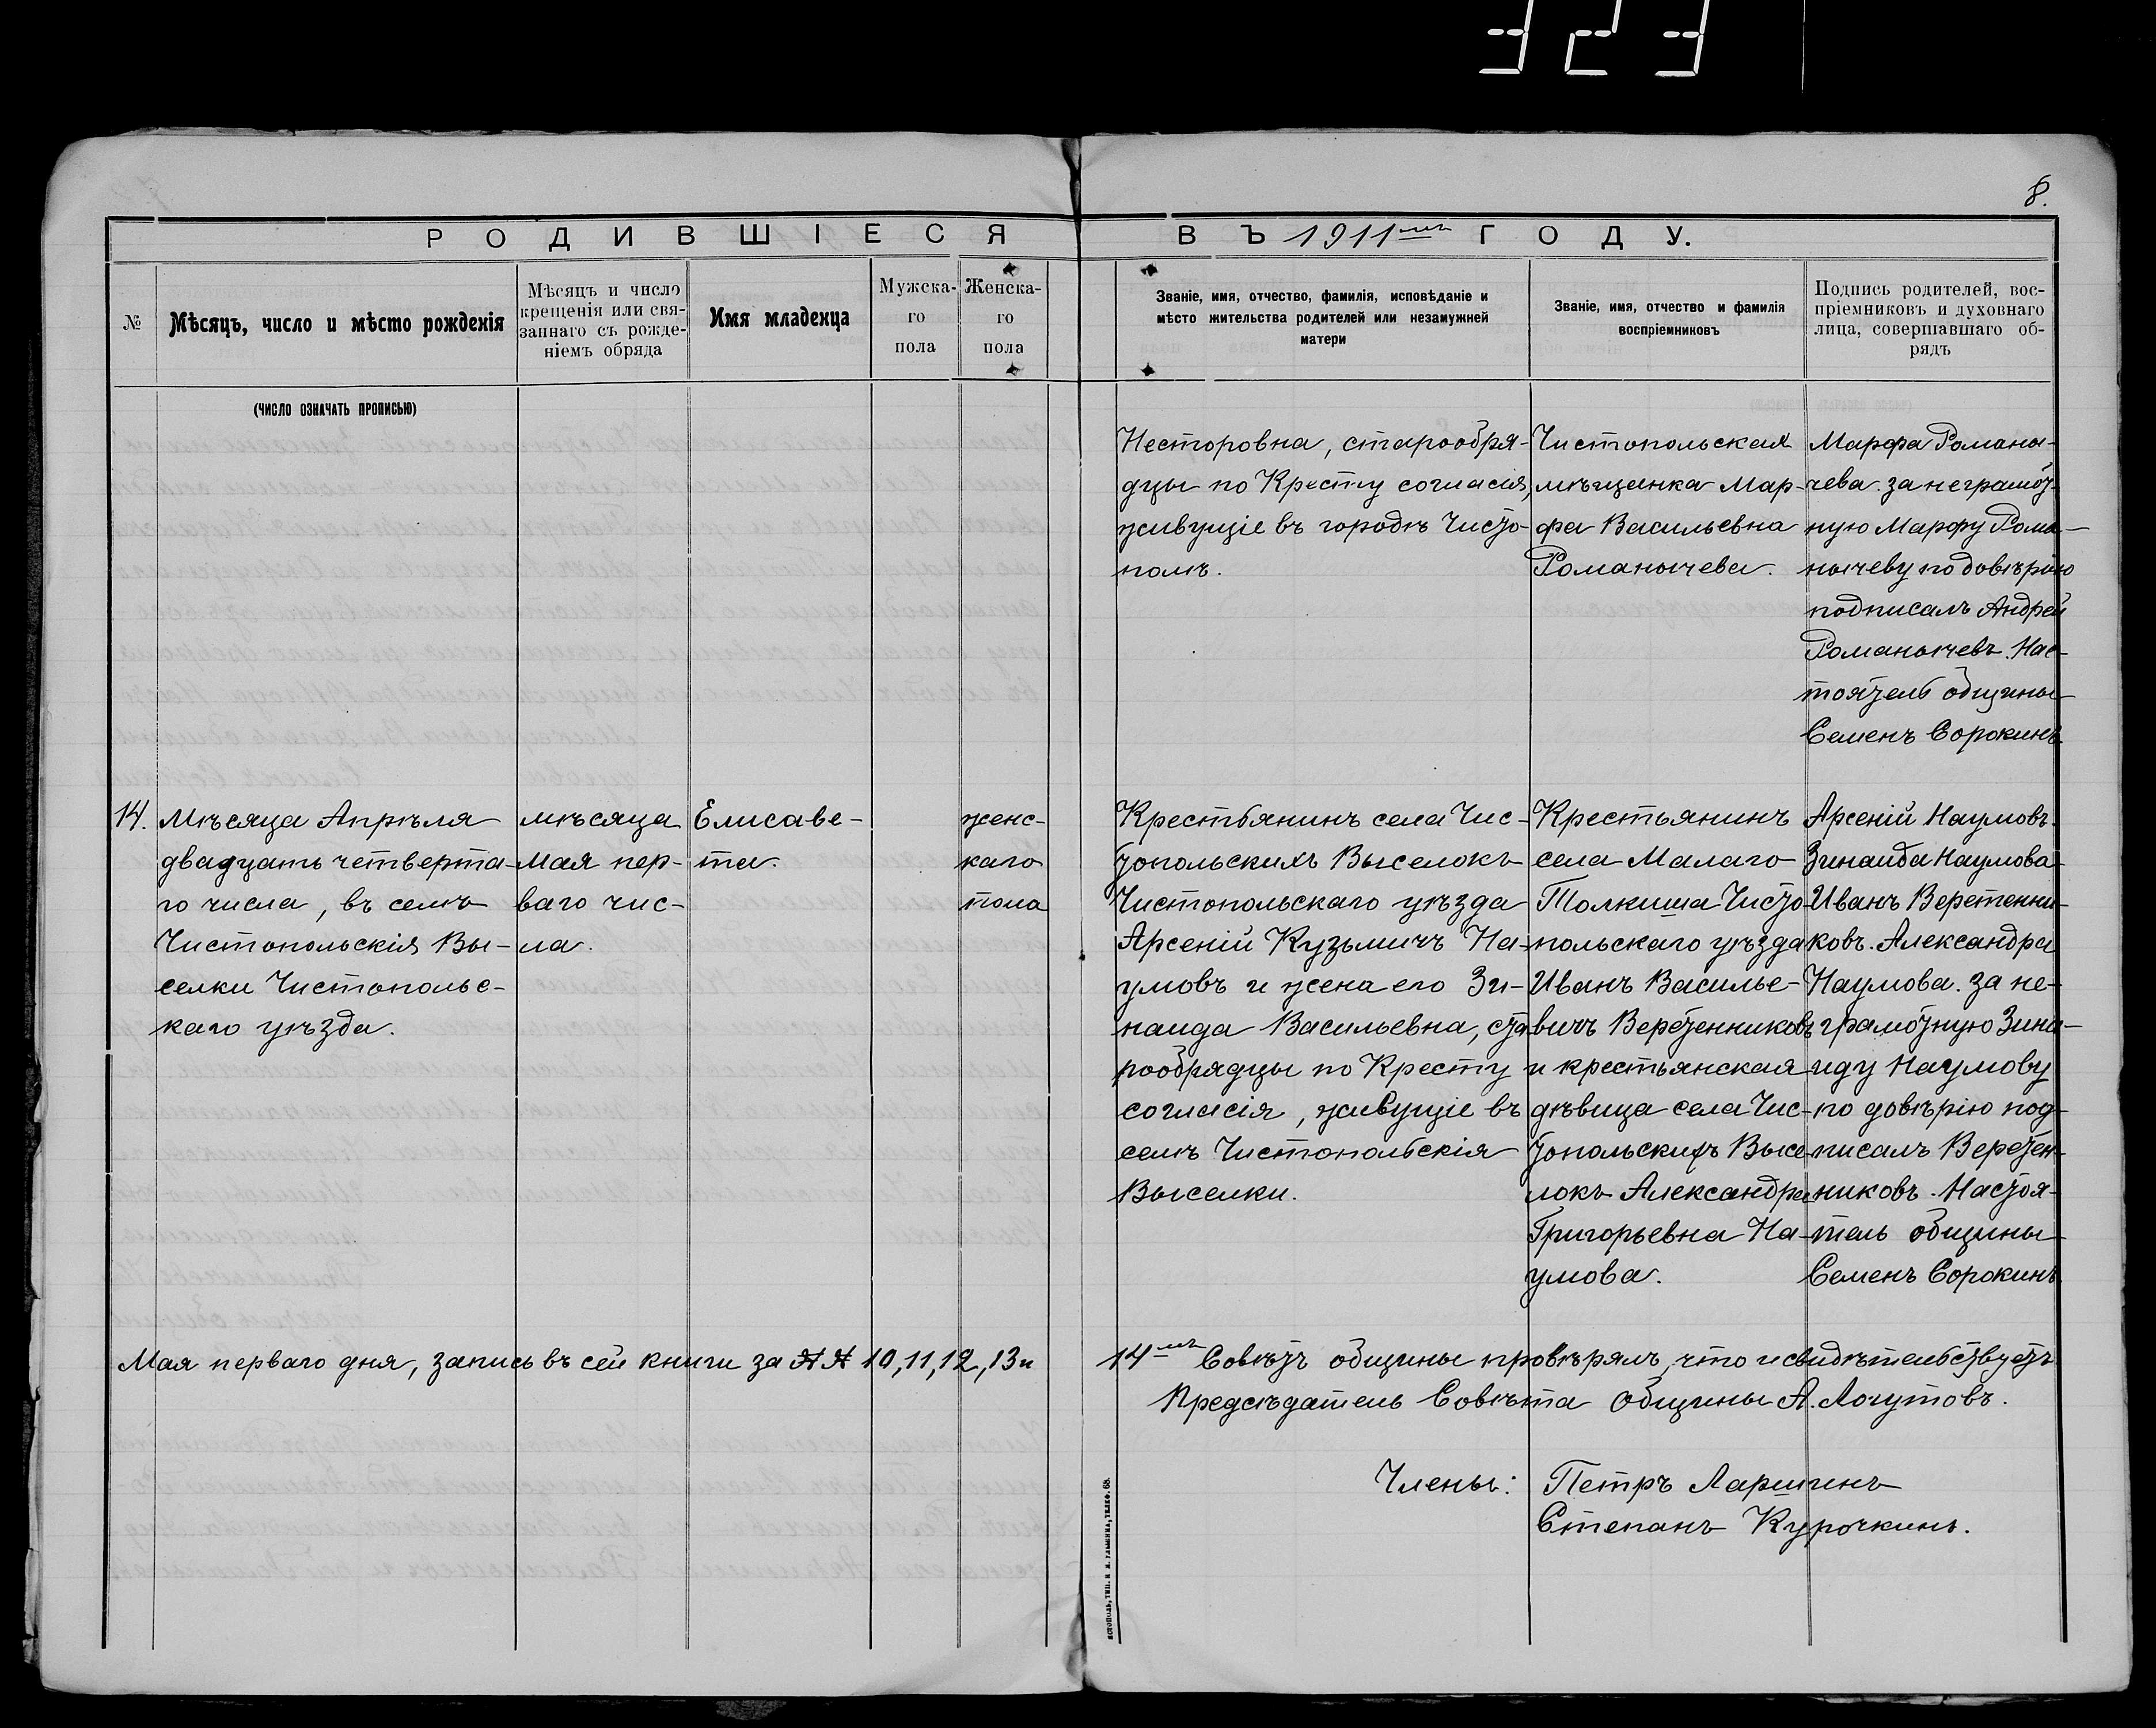 323
8.
РОДИВШІЕСЯ ВЪ 1911мъ ГОДУ.
№
Мѣсяцъ, число и мѣсто рожденія
Мѣсяцъ и число
крещенія или свя-
заннаго съ рожде-
ніемъ обряда
Имя младенца
Мужска-
го
пола
Женска-
го
пола
Званіе, имя, отчество, фамилія, исповѣданіе и
мѣсто жительства родителей или незамужней
матери
Званіе, имя, отчество и фамилія
воспріемниковъ
Подпись родителей, вос-
пріемниковъ и духовнаго
лица, совершавшаго об-
рядъ
(число означать прописью)
Несторовна, старообря-
дцы по Кресту согласія,
живущіе въ городѣ Чисто-
полѣ.
Чистопольская
мѣщанка Мар-
фа Васильевна
Романычева.
Марфа Романы-
чева. за неграмот-
ную Марфу Рома-
нычеву по довѣрію
подписалъ Андрей
Романычевъ. Нас-
тоятель общины
Семенъ Сорокинъ.
14.
Мѣсяца Апрѣля
двадцать четверта-
го числа, въ селѣ
Чистопольскія Вы-
селки Чистопольс-
каго уѣзда.
мѣсяца
Мая пер-
ваго чис-
ла.
Елисаве-
та.
женс-
каго
пола
Крестьянинъ села Чис-
топольскихъ Выселокъ
Чистопольскаго уѣзда
Арсеній Кузьмичъ На-
умовъ и жена его Зи-
наида Васильевна, ста
рообрядцы по Кресту
согласія, живущіе въ
селѣ Чистопольскія
Выселки.
Крестьянинъ
села Малаго
Толкиша Чисто
польскаго уѣзда
Иванъ Василье-
вичъ Веретенниковъ
и крестьянская
дѣвица села Чис-
топольскихъ Высе
локъ Александра
Григорьевна На-
умова.
Арсеній Наумовъ.
Зинаида Наумова
Иванъ Веретенни-
ковъ. Александра
Наумова. за не-
грамотную Зина-
иду Наумову
по довѣрію под-
писалъ Веретен-
никовъ. Настоя-
тель общины
Семенъ Сорокинъ.
Мая перваго дня, запись въ сей книги за №№ 10, 11, 12, 13 и 14мъ Совѣтъ общины провѣрялъ, что и свидѣтельствуетъ
Предсѣдатель Совѣта Общины А. Логутовъ.
Члены: Петръ Ларшинъ
Степанъ Курочкинъ.